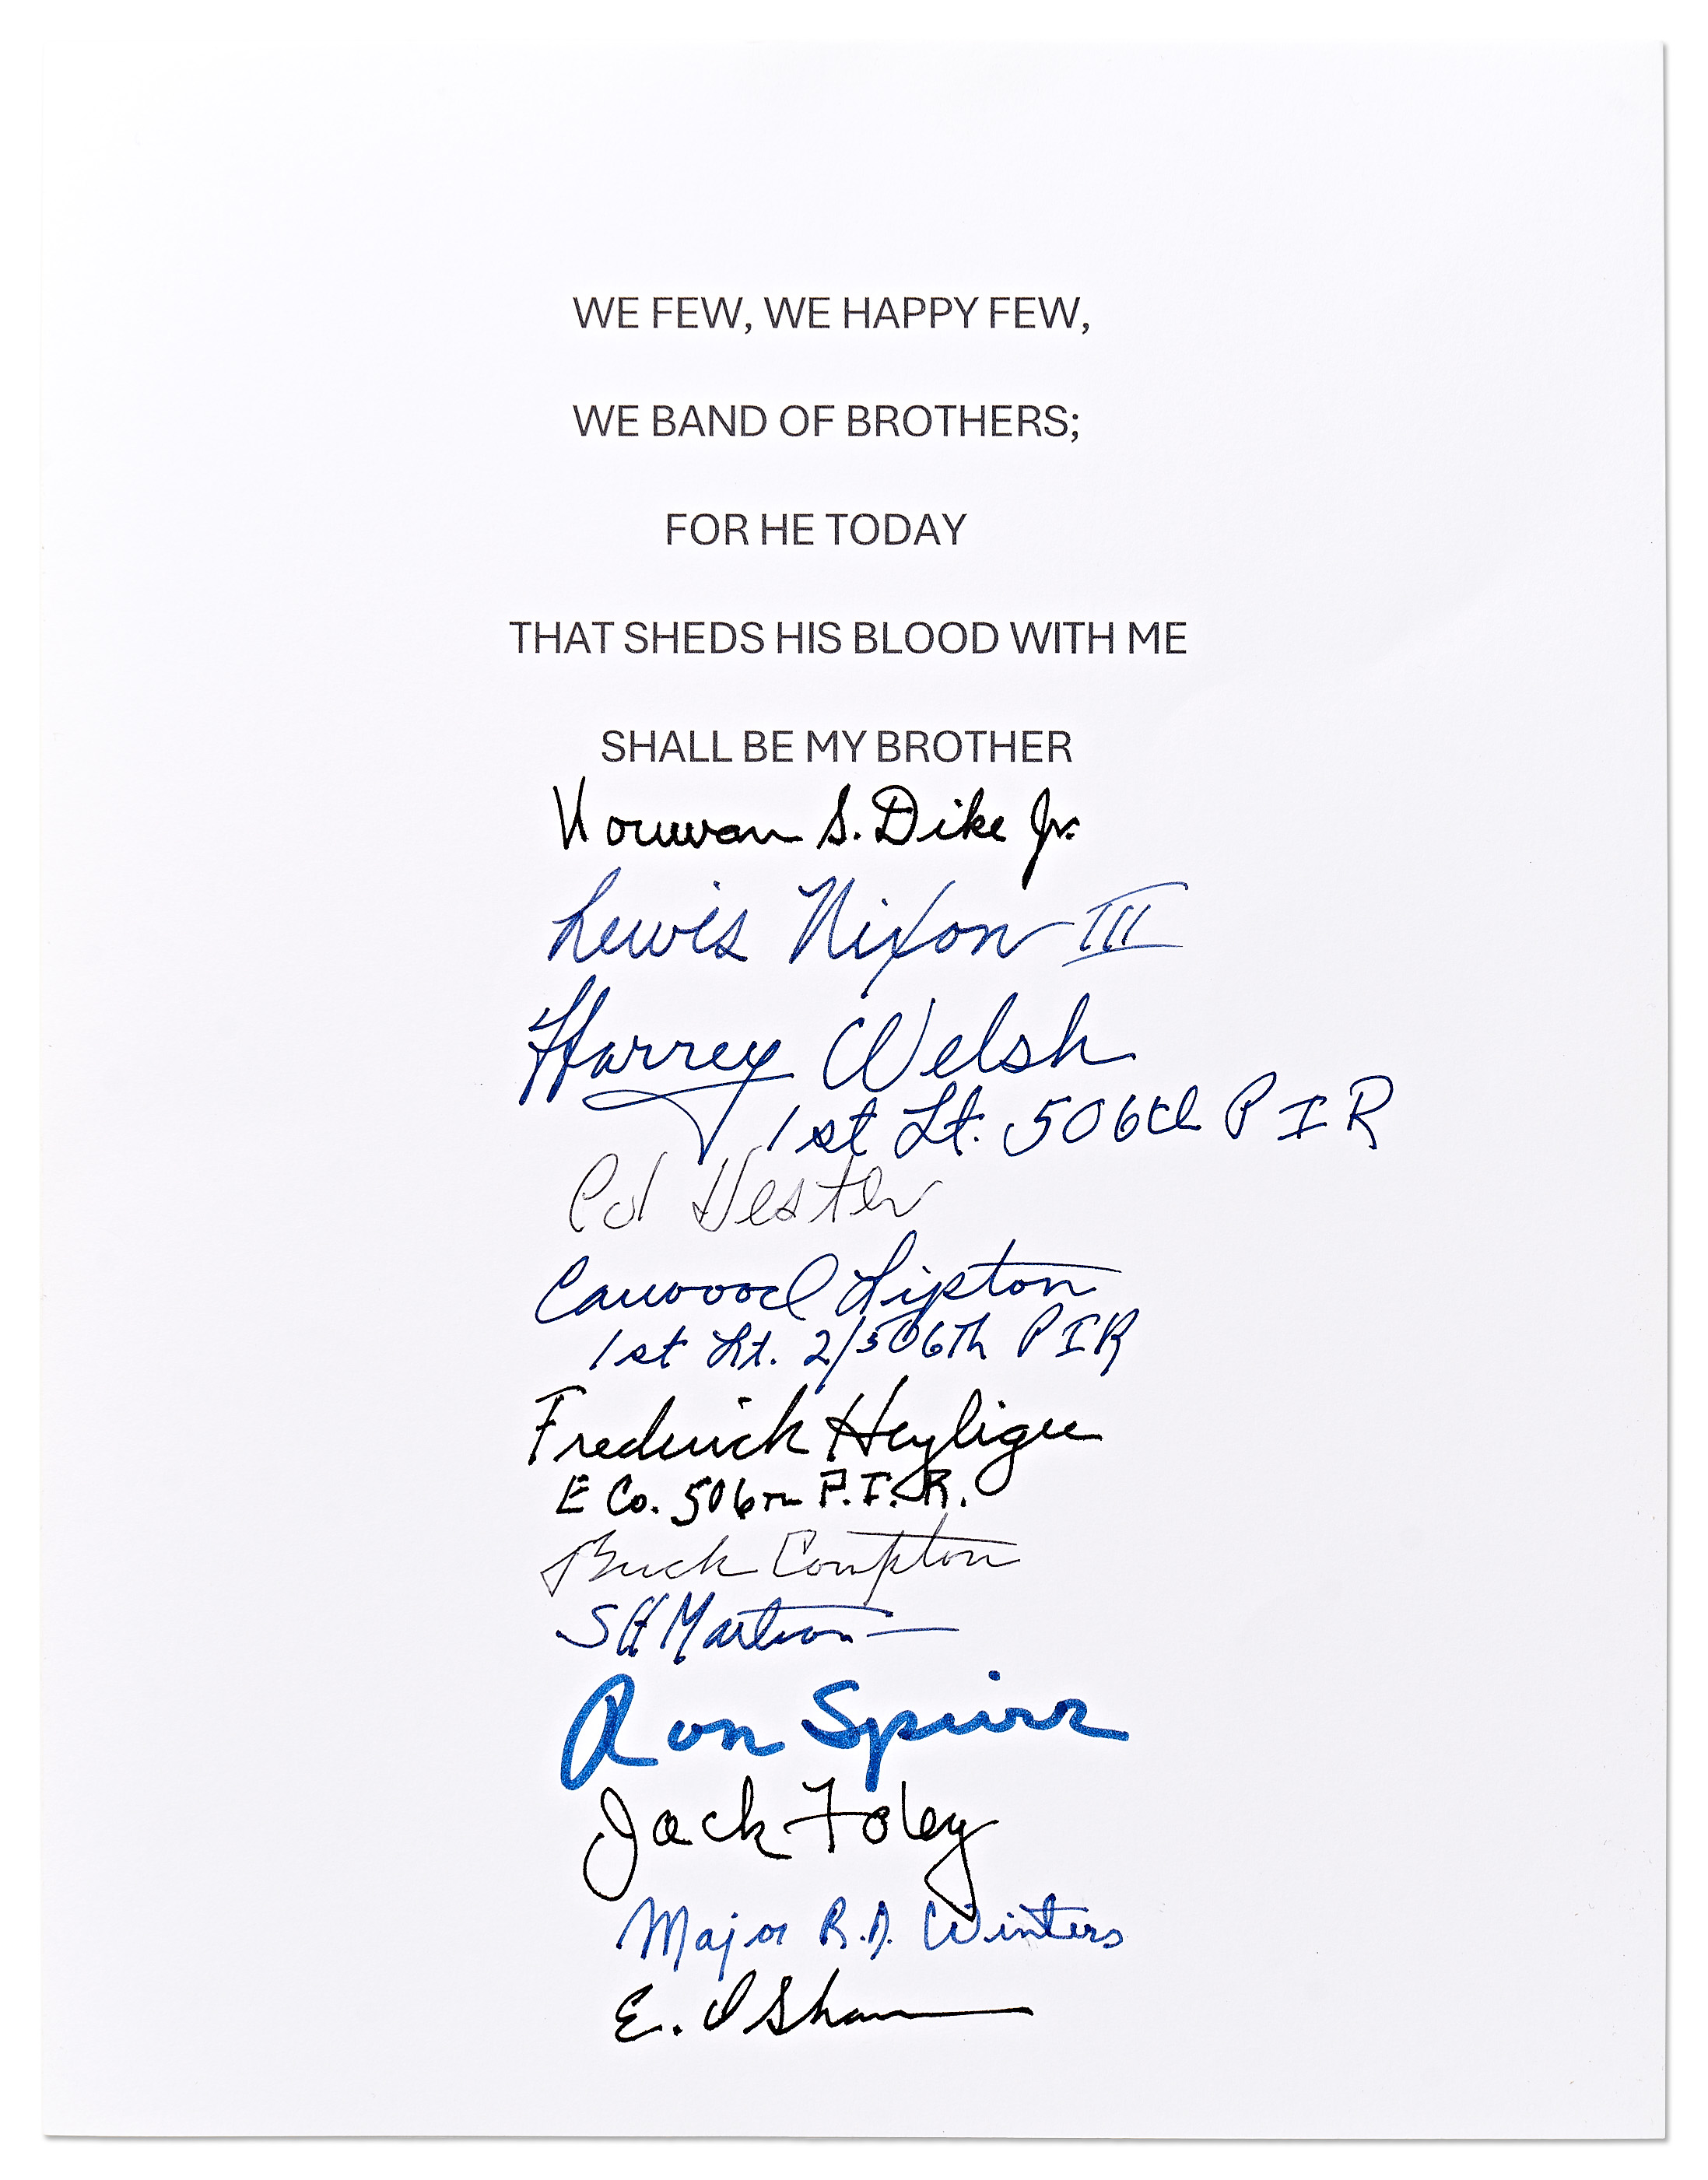 WE FEW, WE HAPPY FEW,
WE BAND OF BROTHERS;
FOR HE TODAY
THAT SHEDS HIS BLOOD WITH ME
SHALL BE MY BROTHER
Norman S. Dike Jr.
Lewis Nixon III
Harrey Welsh
1st Lt. 506th P I R
Ed Hester
Carwood Lipton
1st Lt. 2/506Th P I R
Frederick Heyliger
E Co. 506TH P.I.R.
Buck Compton
S H Matheson
Ron Speirs
Jack Foley
Major R.D. Winters
E. Shames